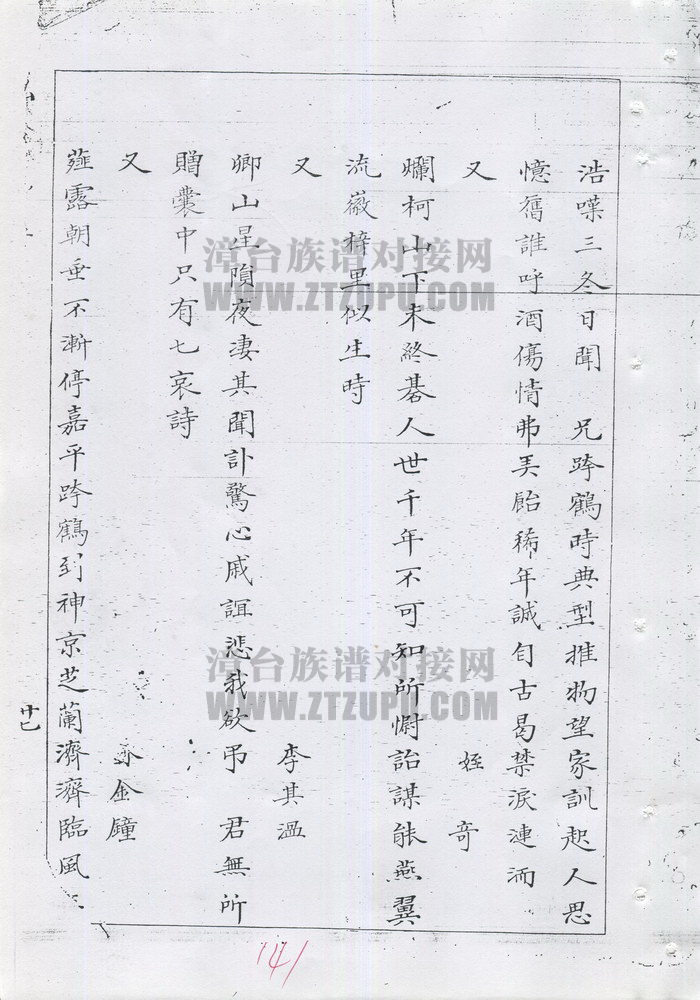 浩嘆三冬日聞　兄跨鶴時典型推物望家訓起人思
憶舊誰呼酒傷情弗美飴稀年誠自古曷禁淚漣洏
又　姪奇
爛柯山下未終碁人世千年不可知所慰詒謀能燕翼
流徽梓里似生時
又　李其溫
卿山星隕夜淒其聞訃驚心戚誼悲我欲弔　君無所
贈囊中只有七哀詩
又　金鐘
薤露朝垂不漸停嘉平跨鶴到神京芝蘭濟濟臨風
十七
141
漳台族谱对接网
WWW.ZTZUPU.COM
漳台族谱对接网
WWW.ZTZUPU.COM